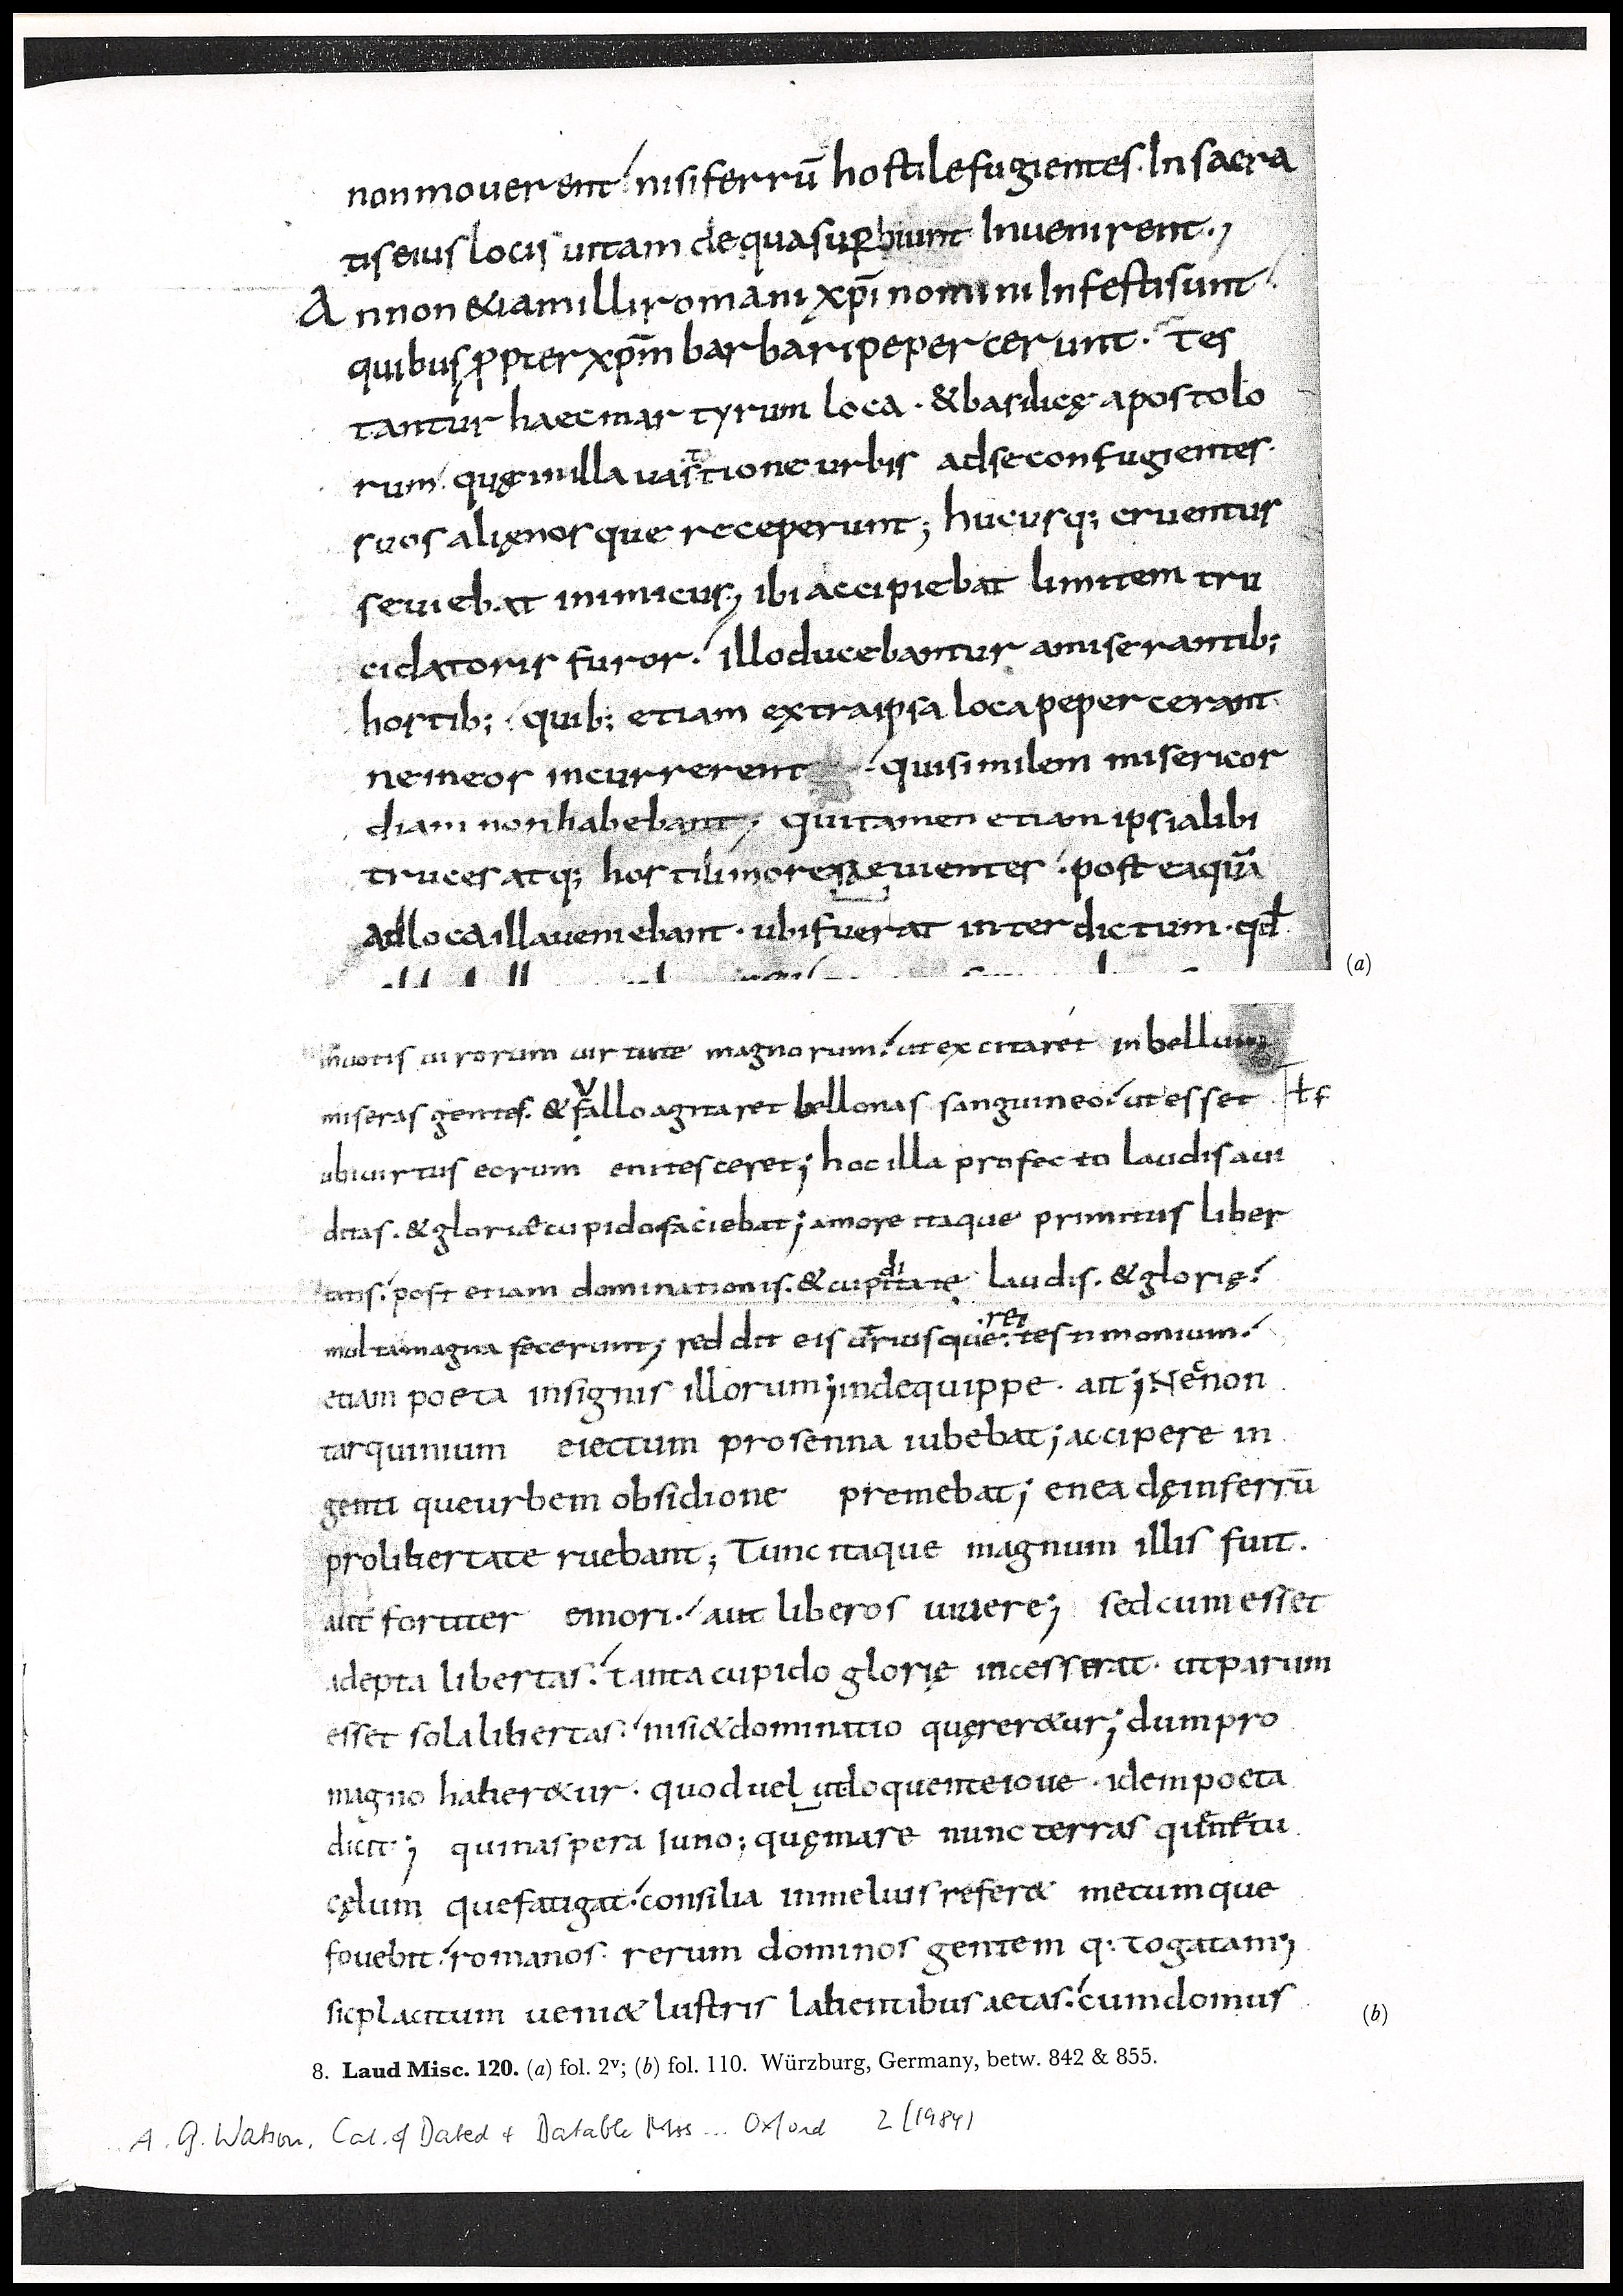 nonmouerent nisiferrū hostilefugientes. Insacra
tiseius locis uitam dequasuꝑbiunt Inuenirent.,
Annon &iamilliromani xp̄inomini Infestisunt
quibus ꝓpter xp̄m barbaripepercerunt. Tes
tantur haecmartyrum loca . &basilicę apostolo
rum quęinilla uastione urbis adseconfugientes.
suosalięnosque receperunt; hucusq; cruentus
seuiebat inimicus, ibi accipiebat limitem tru
cidatoris furor. illoducebantur amiserantib;
hostib; quib; etiam extraipsa locapepercerant
neineos incurrerent quisimilem misericor
diam nonhabebant, Quitamen etiam ipsialibi
truces atq; hostilimore saeuientes . post eaquā
adlocaillaueniebant . ubifuerat interdictum . qđ
inuotis uirorum uirtute magnorum. utexcitaret inbellum
miseras gentes. &fallo agitaret bellonas sanguineo. utesset ł f
v
ubiuirtus eorum enitesceret; hoc illa profecto laudisaui
ditas . &gloriaecupidofaciebat; amore itaque primitus liber
tatis. post etiam dominationis. &cupitate laudis. &glorię.
di
multamagna fecerunt; reddit eis utriusque: testimonium.
rei
etiam poeta insignis illorum; indequippe . ait; Nec non
tarquinium eiectum prosenna iubebat; accipere in
genti queurbem obsidione premebat; enea dęinferrū
prolibertate ruebant; Tunc itaque magnum illis fuit.
aut fortiter emori. aut liberos uiuere; sedcumesset
adepta libertas. tantacupido glorię incesserat . utparum
esset solalibertas. nisi&dominatio quęrer&ur; dumpro
magno haber&ur . quoduel utloquenteioue . idempoeta
dicit; quinaspera Iuno; quęmare nunc terras
cęlum quefatigat. consilia inmelius refer& mecumque
fouebit romanos rerum dominos gentem q. togatam;
sicplacitum ueni& lustris labentibus aetas. cumdomus
(a)
(b)
8. Laud Misc. 120. (a) fol. 2v; (b) fol. 110. Würzburg, Germany, betw. 842 & 855.
A. G. Watson, Cat. of Dated & Datable Mss ... Oxford 2 (1984)